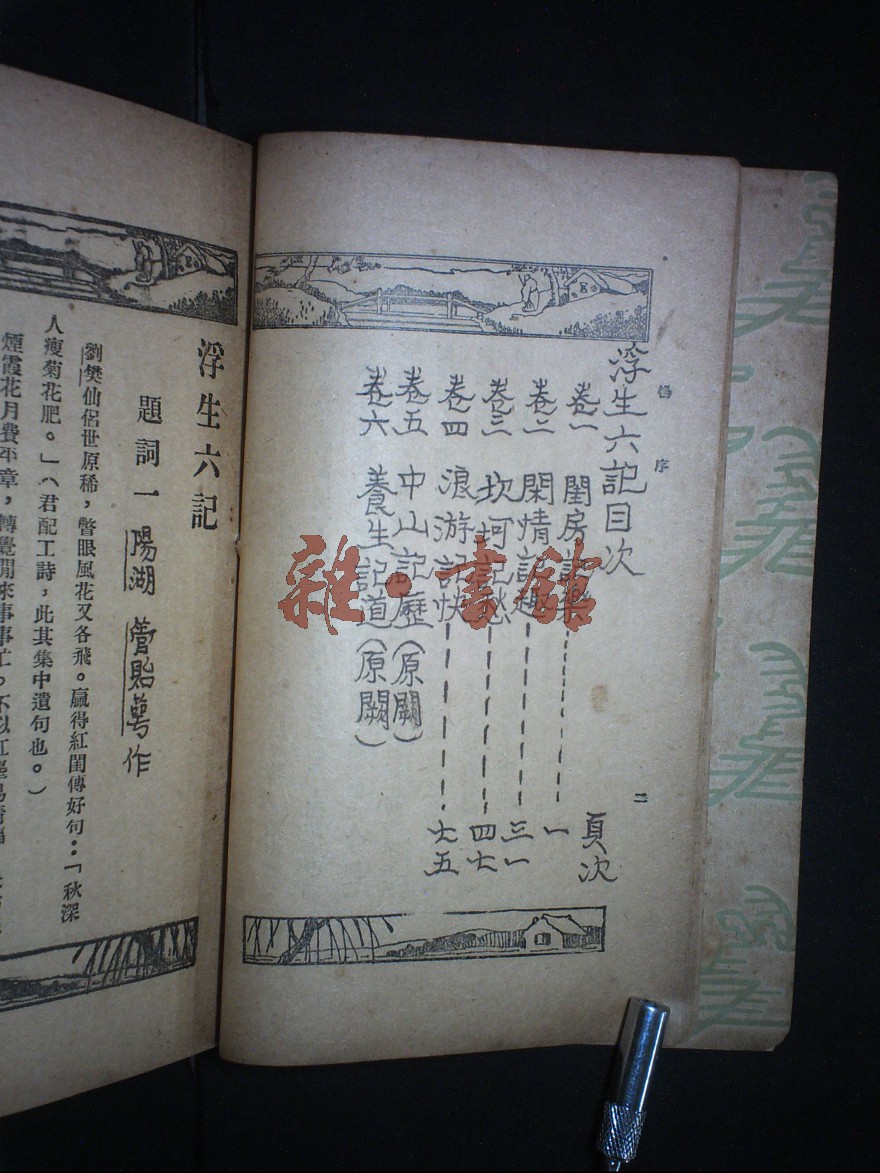 浮生六記目次
頁次
卷一 閨房記樂 一
卷二 閑情記趣 三一
卷三 坎坷記愁 四七
卷四 浪游記快 七五
卷五 中山記歷（原闕）
卷六 養生記道（原闕）
序
二
雜·書館
浮生六記
題詞一 陽湖 管貽萼作
劉樊仙侶世原稀，瞥眼風花又各飛。贏得紅閨傳好句：「秋深
人瘦菊花肥。」（君配工詩，此其集中遺句也。）
煙霞花月費平章，轉覺閒來事事忙。不以紅塵易清福，